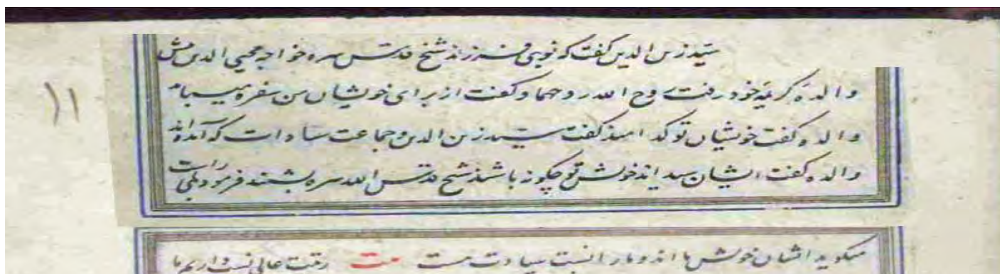 سید زین الدین گفت که نوبتی فرزند شیخ قدس سره خواجه محیی الدین پیش
والدهٔ کریمهٔ خود رفت روح الله روحهما و گفت از برای خویشان من سفره میباید
والده گفت خویشان تو کدامند گفت سید زین الدین و جماعت سادات که آمده‌اند
والده گفت ایشان سید اند خویش تو چگونه باشند شیخ قدس الله سره بشنید فرمود بلی راست
میگوید ایشان خویش ما اند و ما را نسبت سیادت هست